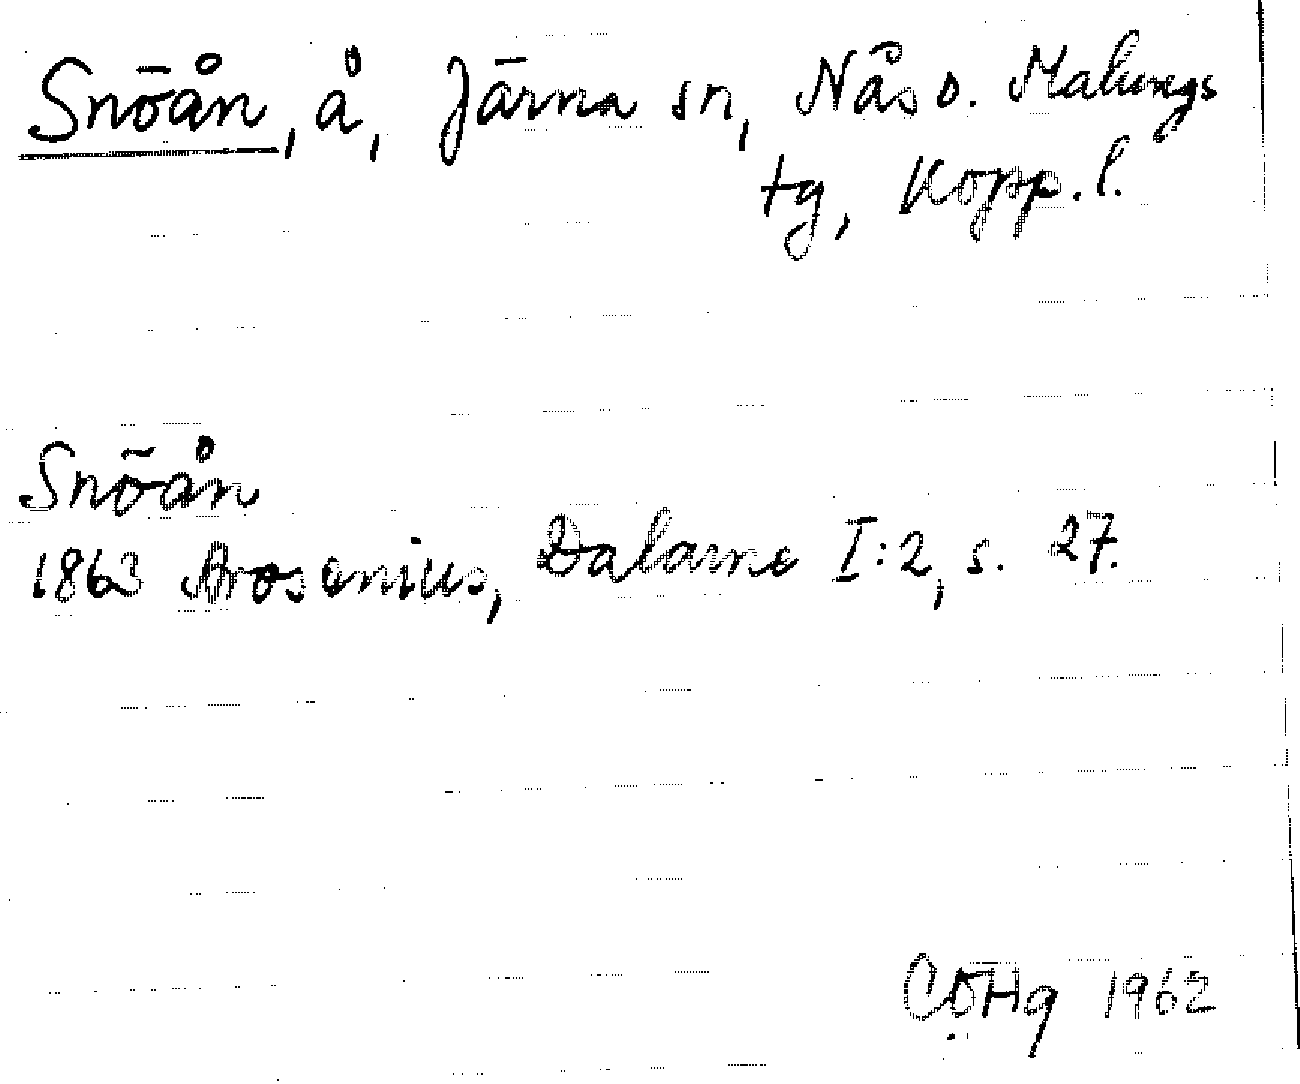 Snöån, å, Järna sn, Nås o. Malungs
tg, Kopp. l.
Snöån
1863 Arosenius, Dalarne I:2, s. 27.
CÖHg 1962